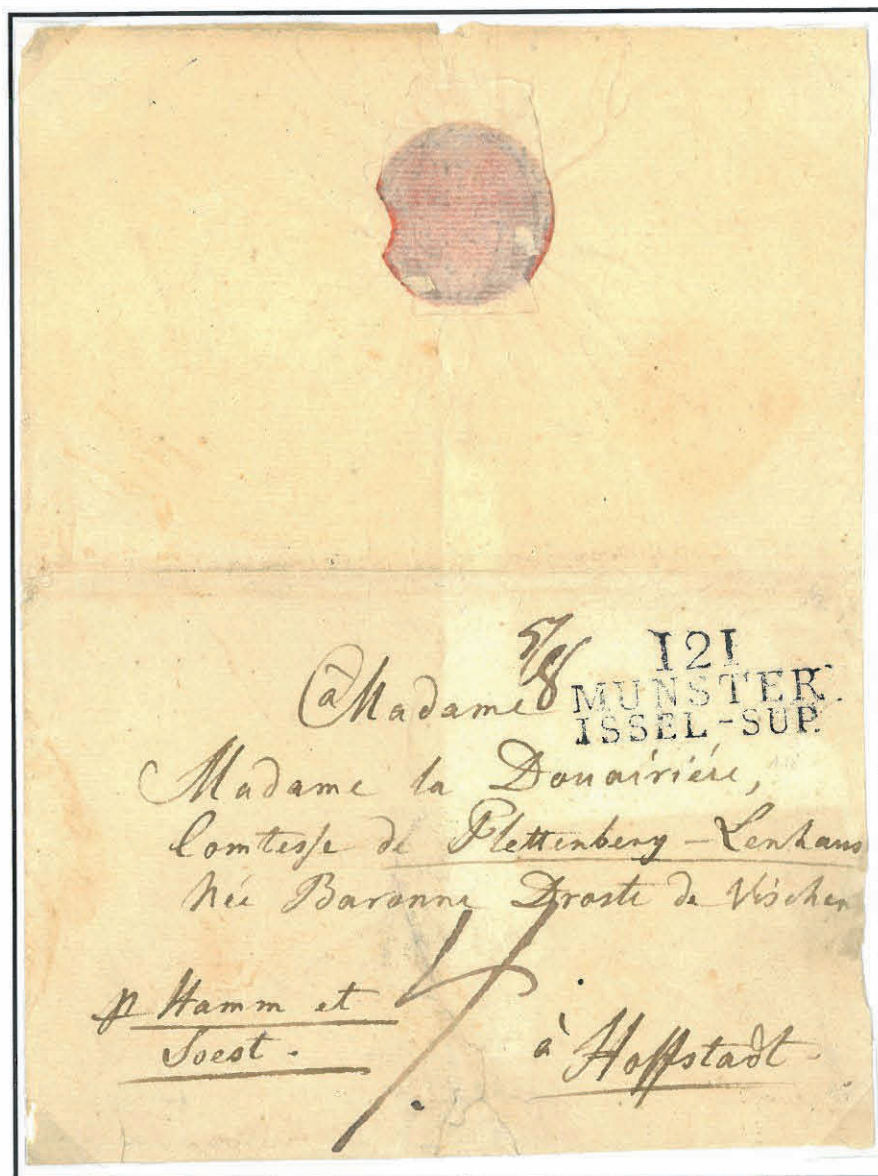 5/8
121
MUNSTER
ISSEL-SUP.
à Madame
Madame la Douairiére,
Comtesse de Plettenberg - Lenhaus
Née Baronne Droste de Vischer
p Hamm et
Soest.
à Hoffstadt.